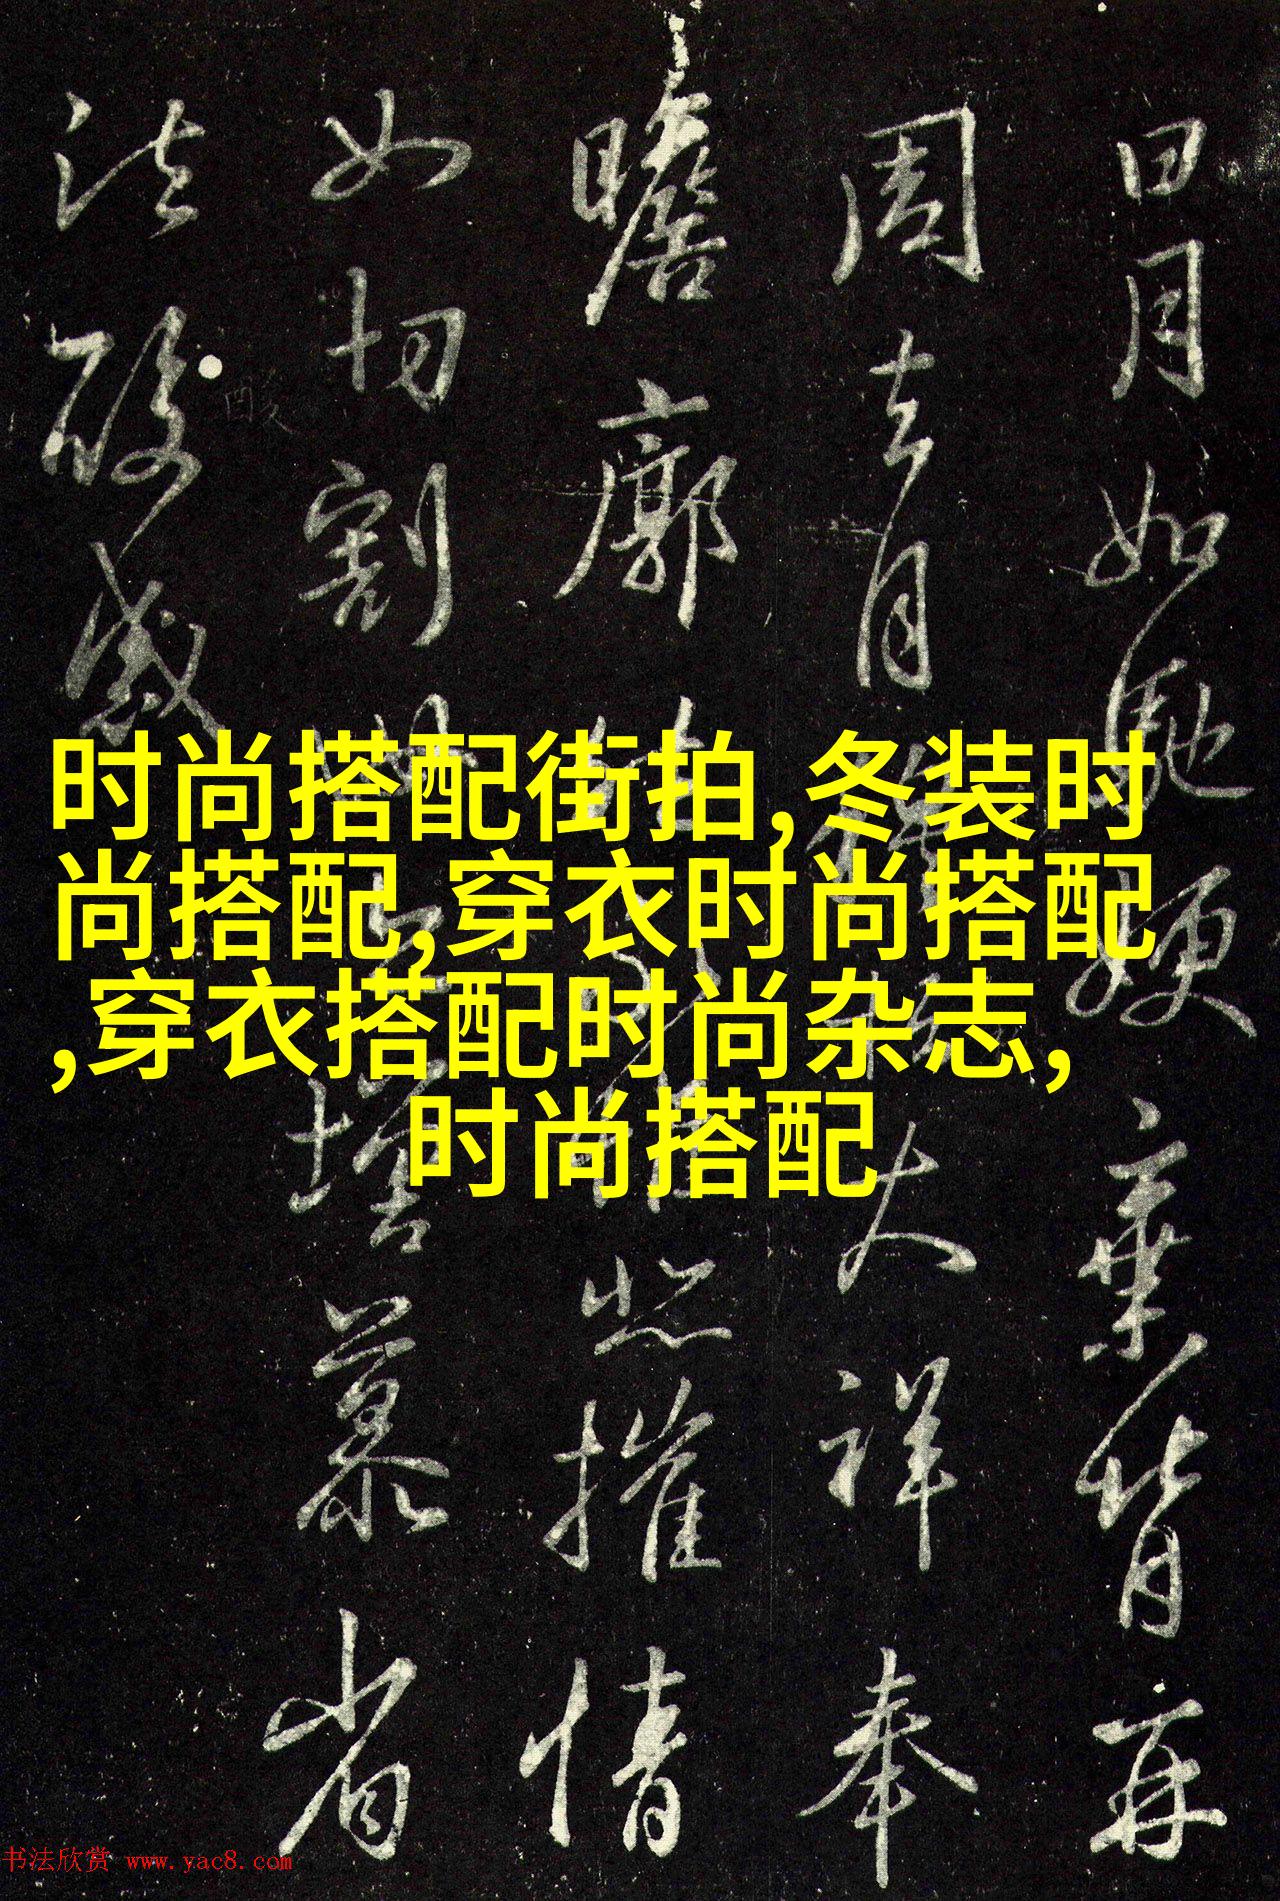 时尚搭配街拍,冬装时
尚搭配,穿衣时尚搭配
,穿衣搭配时尚杂志,
时尚搭配
日月如馳嫂棄背再
周去月大祥奉
瞻廓摧情
如切割増慕省
酸感
书法欣赏 www.yac8.com